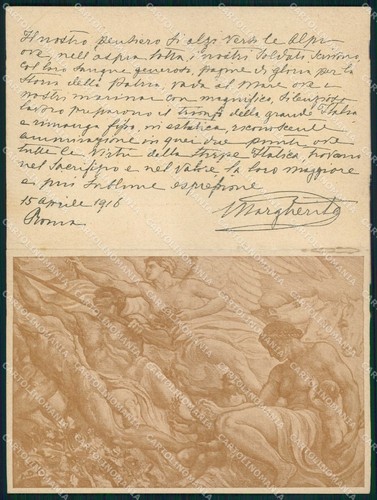 Il nostro pensiero si alzi verso le Alpi
ove, nell'aspra lotta, i nostri soldati scrivono
col loro sangue generoso, pagine di gloria per la
Storia della Patria, vada al Mare ove i
nostri marinai con magnifica, silenziosa
lavoro preparano il trionfo della grande Italia
e rimanga fisso, in estatica, riconoscente
ammirazione in quei due punti ove
tutte le virtù della stirpe Italica, trovano
nel Sacrifizio e nel valore la loro maggiore
e più sublime espressione
15 aprile 1916
Roma
Margherita
CARTOLINOMANIA